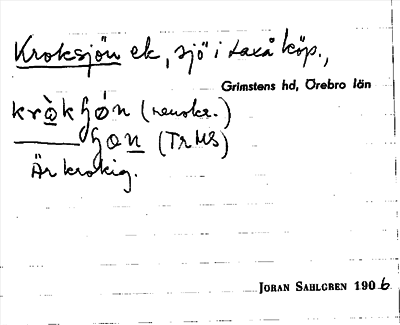 Kroksjön ek, sjö i Laxå köp.,
Grimstens hd, Örebro län
kròkɧón (renskr.)
——— ɧon (TrMS)
Är krokig.
JORAN SAHLGREN 1906